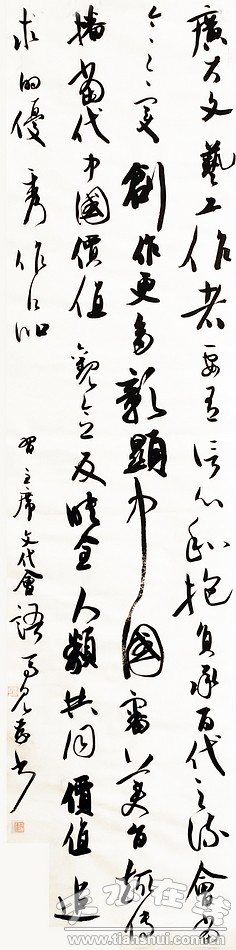 廣大文藝工作者要有信心和抱負承百代之流會當
今之變創作更多彰顯中國審美旨趣傳
播當代中國價值觀念反映全人類共同價值追
求的優秀作品
習主席文代會語
書
天水在线
www.tianshui.com.cn